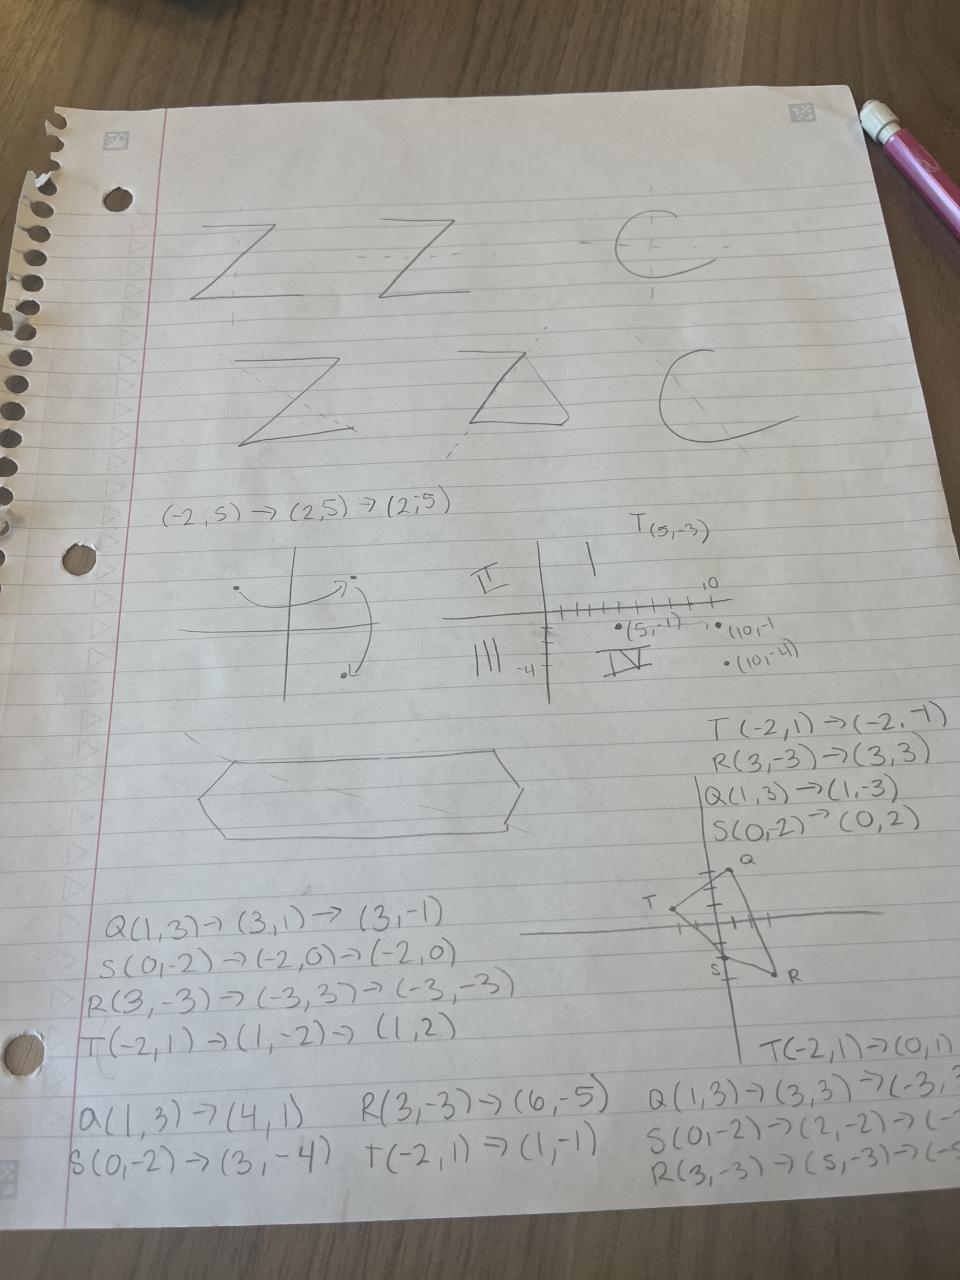 (-2,5) → (2,5) → (2,-5)
T(5,-3)
II
I
10
(5,-1) → (10,-1
III
-4
IV
(10,-4)
T(-2,1)→(-2,-1)
R(3,-3)→(3,3)
Q(1,3)→(1,-3)
S(0,-2)→(0,2)
Q
T
S
R
Q(1,3)→(3,1)→(3,-1)
S(0,-2)→(-2,0)→(-2,0)
R(3,-3)→(-3,3)→(-3,-3)
T(-2,1)→(1,-2)→(1,2)
T(-2,1)→(0,1)
Q(1,3)→(4,1) R(3,-3)→(6,-5) Q(1,3)→(3,3)→(-3,
S(0,-2)→(3,-4) T(-2,1)→(1,-1) S(0,-2)→(2,-2)→(-
R(3,-3)→(5,-3)→(-